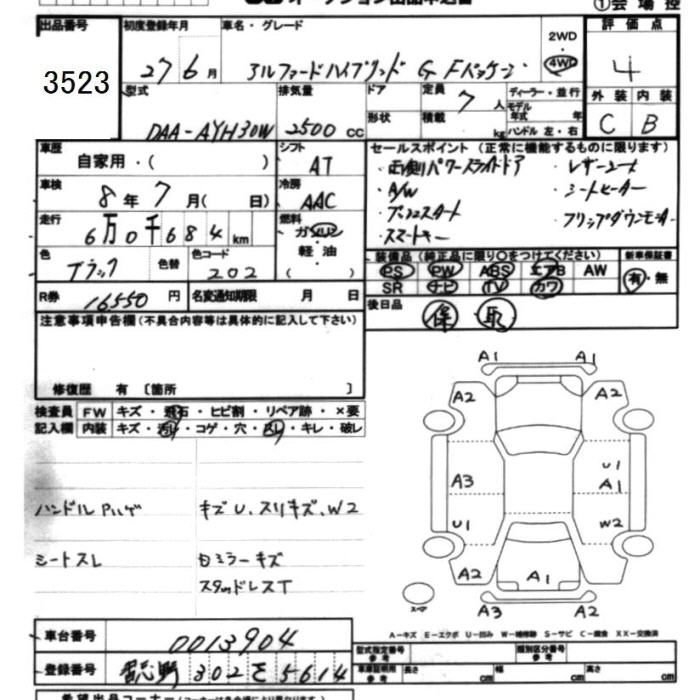 ①会場控
出品番号
3523
初度登録年月
27 6月
車名・グレード
アルファードハイブリッド G Fパッケージ
2WD
4WD
評価点
4
外装 内装
C B
型式
DAA-AYH30W
排気量
2500 cc
ドア
形状
定員
7人
積載
kg
ディーラー・並行
モデル年式 年式
ハンドル 左・右
車歴
自家用・( )
シフト
AT
車検
8年 7月( 日)
冷房
AAC
走行
6万0千684km
燃料
ガソリン
軽・油
( )
色
ブラック
色替
色コード
202
R券
16550円
名変通知期限 月 日
セールスポイント(正常に機能するものに限ります)
・両側パワースライドドア
・A/W
・プッシュスタート
・スマートキー
・レザーシート
・シートヒーター
・フリップダウンモニター
装備品(純正品に限り○をつけてください)
PS PW ABS エアB AW
SR ナビ TV カワ
新車保証書
有・無
後日品
保 取
注意事項申告欄(不具合内容等は具体的に記入して下さい)
修復歴 有〔箇所 〕
検査員記入欄
FW キズ・飛石・ヒビ割・リペア跡・×要
内装 キズ・汚れ・コゲ・穴・スレ・キレ・破レ
ハンドル
シートスレ
キズU、スリキズ、W2
ミラーキズ
スタッドレスT
A1 A1
A2 A2
A3
U1
A1
U1
W2
A2
A1
A2
A3 A2
スペア
A-キズ E-エクボ U-凹み W-補修跡 S-サビ C-腐食 XX-交換済
車台番号
0013904
登録番号
302 5614
型式指定番号
参考
類別区分番号
参考
車庫証明用
参考
長さ cm
幅 cm
高さ cm
希望出品コーナー